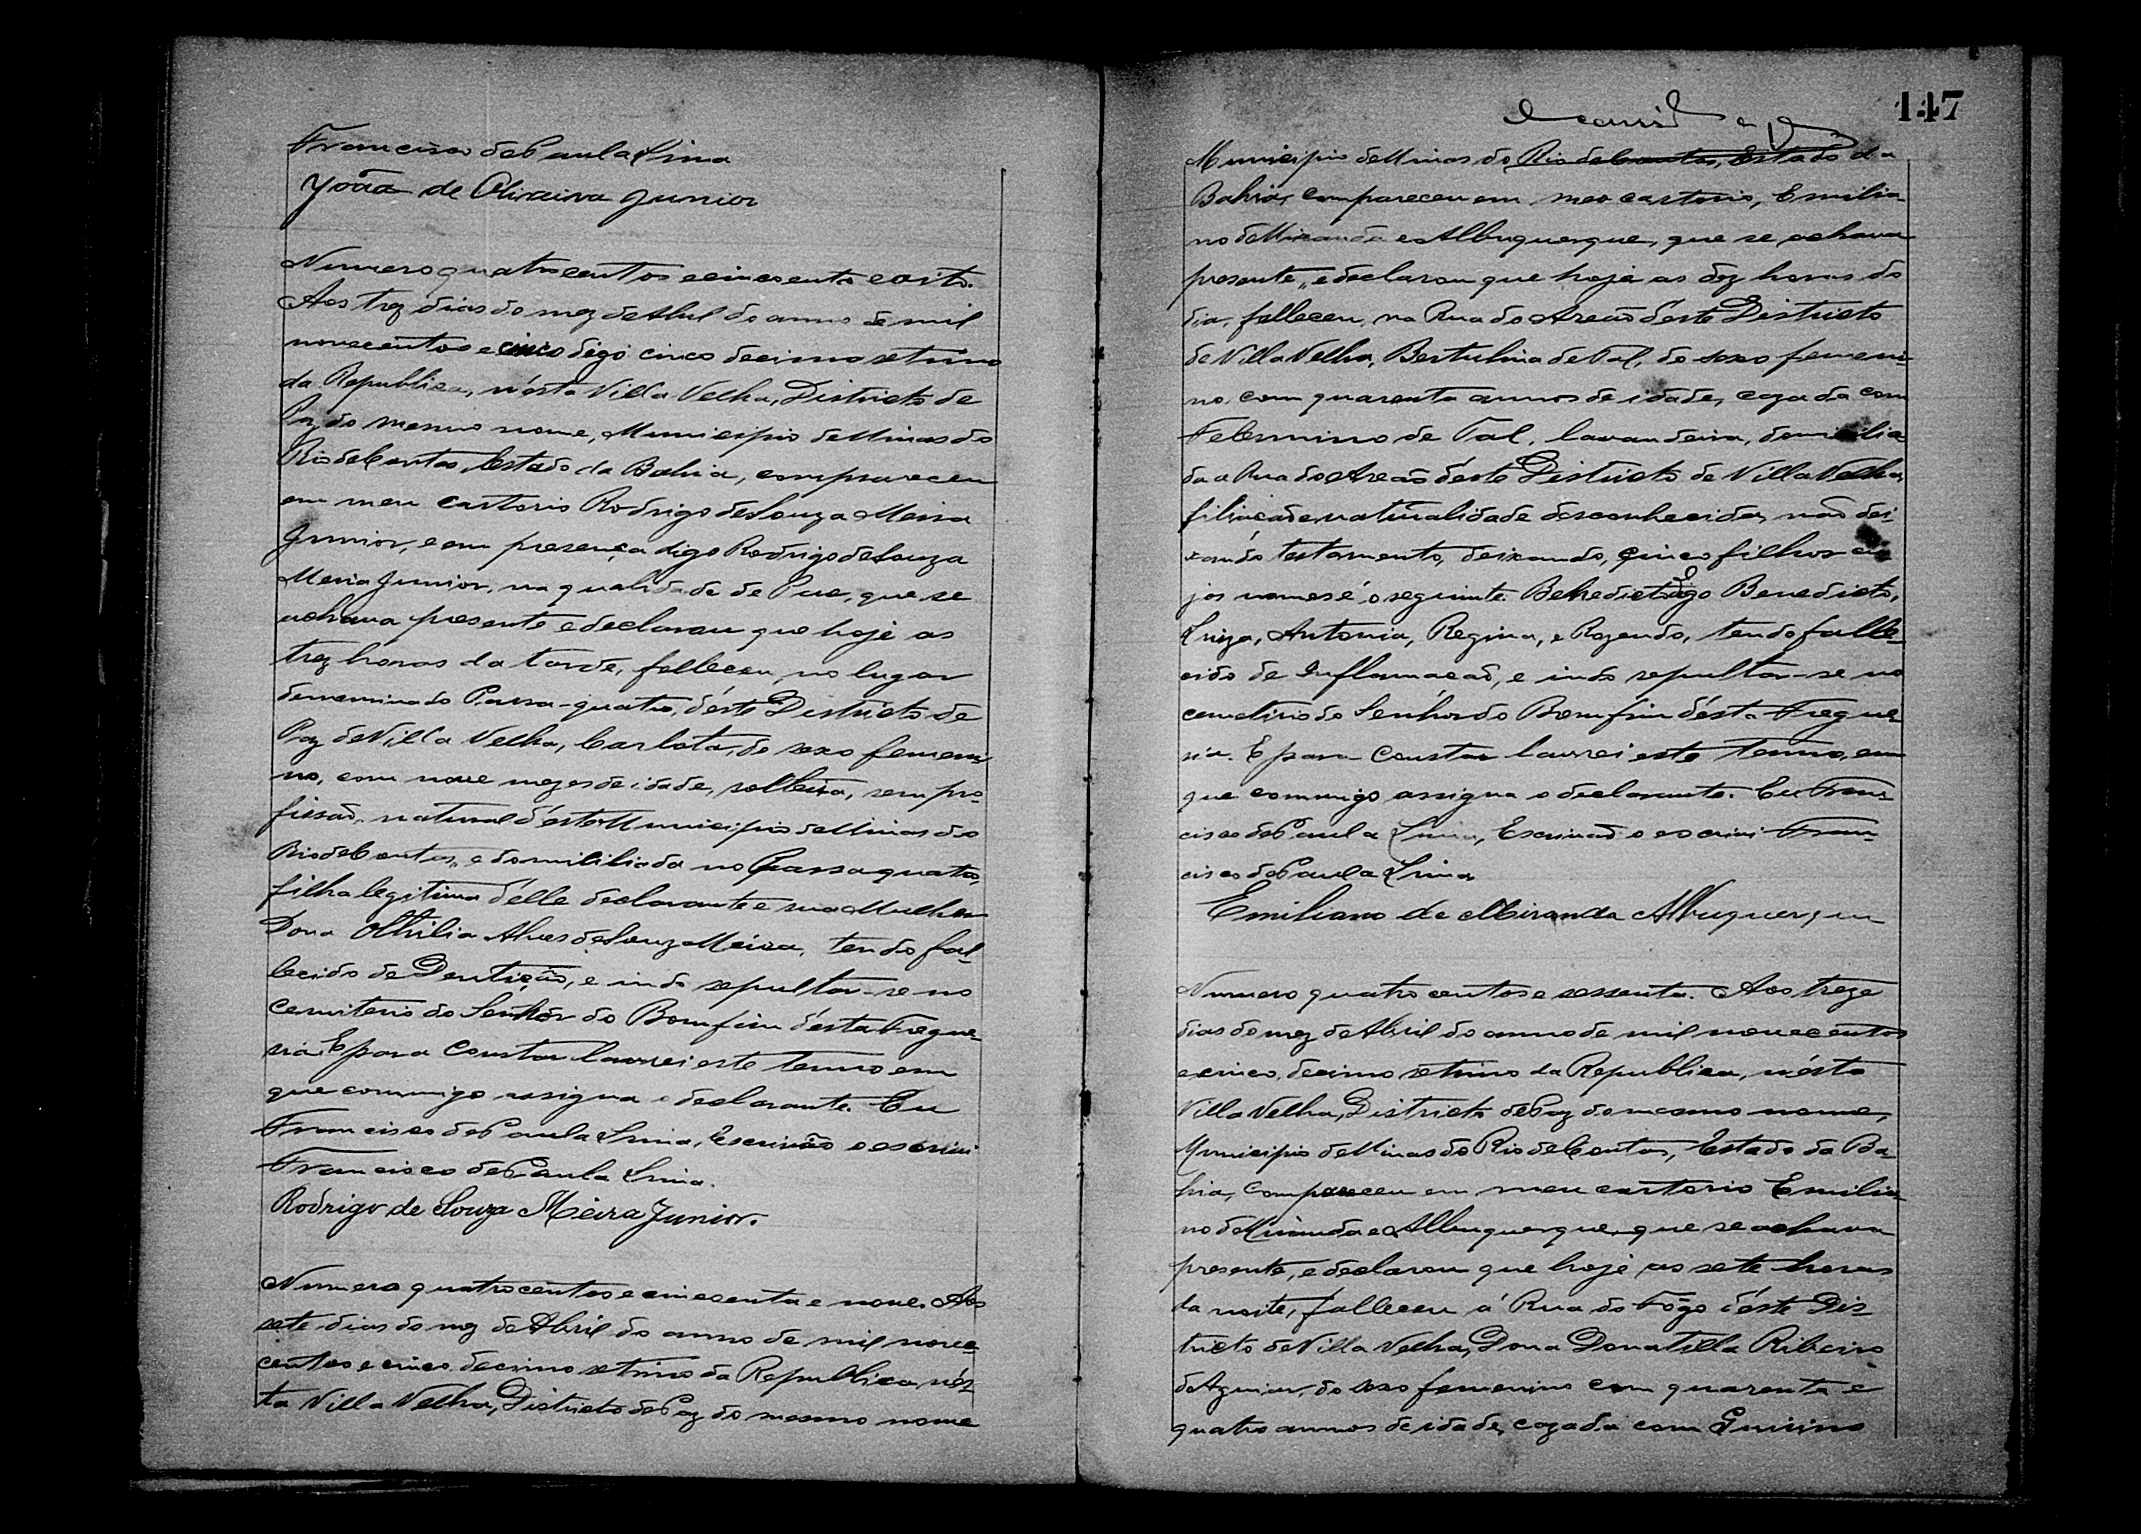 Francisco de Paula Lima
João de Oliveira Junior
Numero quatrocentos e cincoenta e oito.
Aos trez dias do mez de Abril do anno de mil
novecentos e cinco digo cinco decimo setimo
da Republica, n'ésta Villa Velha, Districto de
Paz do mesmo nome, Municipio de Minas do
Rio de Contas, Estado da Bahia, compareceu
em meu cartorio Rodrigo de Souza Meira
Junior, e em presença digo Rodrigo de Souza
Meira Junior, na qualidade de Pae, que se
achava presente e declarou que hoje as
trez horas da tarde, falleceu, no lugar
denominado Passa-quatro, d'éste Districto de
Paz de Villa Velha, Carlota, do sexo femeni
no, com nove mezes de idade, solteira, sem pro-
fissaõ, natural d'éste Municipio de Minas do
Rio de Contas, e domiciliada no Passaquatro,
filha legitima d'élle declarante e sua Mulher
Dona Othilia Alves de Souza Meira, tendo fal-
lecido de Dentição, e indo sepultar-se no
Cemiterio do Senhôr do Bomfim d'ésta Fregue-
sia. E para constar lavrei este termo em
que commigo assigna o declarante. Eu
Francisco de Paula Lima, Escrivão o escrivi
Francisco de Paula Lima.
Rodrigo de Souza Meira Junior.
Numero quatrocentos e cincoenta e nove. Aos
sete dias do mez de Abril do anno de mil nove
centos e cinco, decimo setimo da Republica, n'és-
ta Villa Velha, Districto de Paz do mesmo nome
147
Municipio de Minas do Rio de Contas, Estado da
Bahia, compareceu em meo cartorio, Emilia-
no de Miranda e Albuquerque, que se achava
presente, e declarou que hoje as dez horas do
dia, falleceu, na Rua do Areaõ d'éste Districto
de Villa Velha, Bertulina de Tal, do sexo femeni-
no, com quarenta annos de idade, cazada com
Felesmino de Tal, lavandeira, domicilia
da a Rua do Areaõ d'éste Districto de Villa Velha,
filiacaõ e naturalidade desconhecida, naõ dei-
xando testamento, deixando, cinco filhos cu
jos nomes é o seguinte. Behedicto digo Benedicto,
Luiza, Antonia, Regina, e Rozendo, tendo falle-
cido de Inflamacaõ, e indo sepultar-se no
cemetirio do Senhor do Bomfim d'ésta Fregue
sia. E para constar lavrei este termo, em
que commigo assigna o declarante. Eu Fran-
cisco de Paula Lima, Escrivaõ o escrivi Fran-
cisco de Paula Lima
Emiliano de Miranda Albuquerque
Numero quatro centos e sessenta. Aos treze
dias do mez de Abril do anno de mil novecentos
e cinco, decimo setimo da Republica, n'ésta
Villa Velha, Districto de Paz do mesmo nome,
Municipio de Minas do Rio de Contas, Estado da Ba-
hia, compareceu em meu cartorio Emilia-
no de Miranda e Albuquerque, que se achava
presente, e declarou que hoje as sete horas
da noite, falleceu á Rua do Fôgo d'éste Dis-
tricto de Villa Velha, Dona Donatilla Ribeiro
de Aguiar, do sexo femenino com quarenta e
quatro annos de idade, cazada com